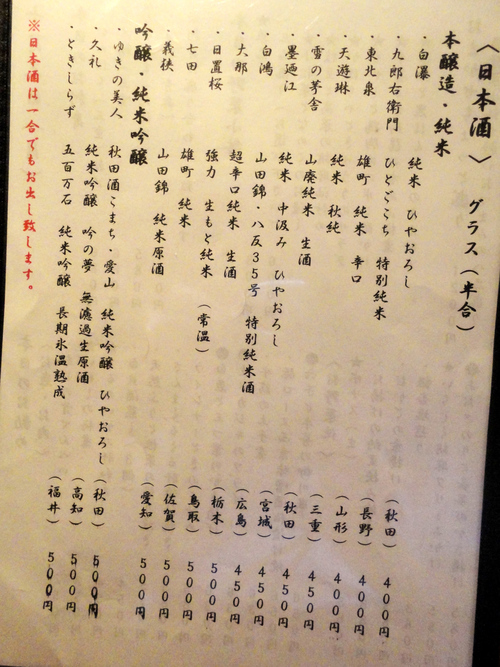 〈日本酒〉 グラス(半合)
本醸造・純米
・白瀑 純米 ひやおろし (秋田) 400円
・九郎右衛門 ひとごこち 特別純米 (長野) 400円
・東北泉 雄町 純米 辛口 (山形) 400円
・天遊琳 純米 秋純 (三重) 450円
・雪の茅舎 山廃純米 生酒 (秋田) 450円
・墨廼江 純米 中汲み ひやおろし (宮城) 450円
・白鴻 山田錦・八反35号 特別純米酒 (広島) 450円
・大那 超辛口純米 生酒 (栃木) 500円
・日置桜 強力 生もと純米 (常温) (鳥取) 500円
・七田 雄町 純米 (佐賀) 500円
・義侠 山田錦 純米原酒 (愛知) 500円
吟醸・純米吟醸
・ゆきの美人 秋田酒こまち・愛山 純米吟醸 ひやおろし (秋田) 500円
・久礼 純米吟醸 吟の夢 無濾過生原酒 (高知) 500円
・ときしらず 五百万石 純米吟醸 長期氷温熟成 (福井) 500円
※日本酒は一合でもお出し致します。